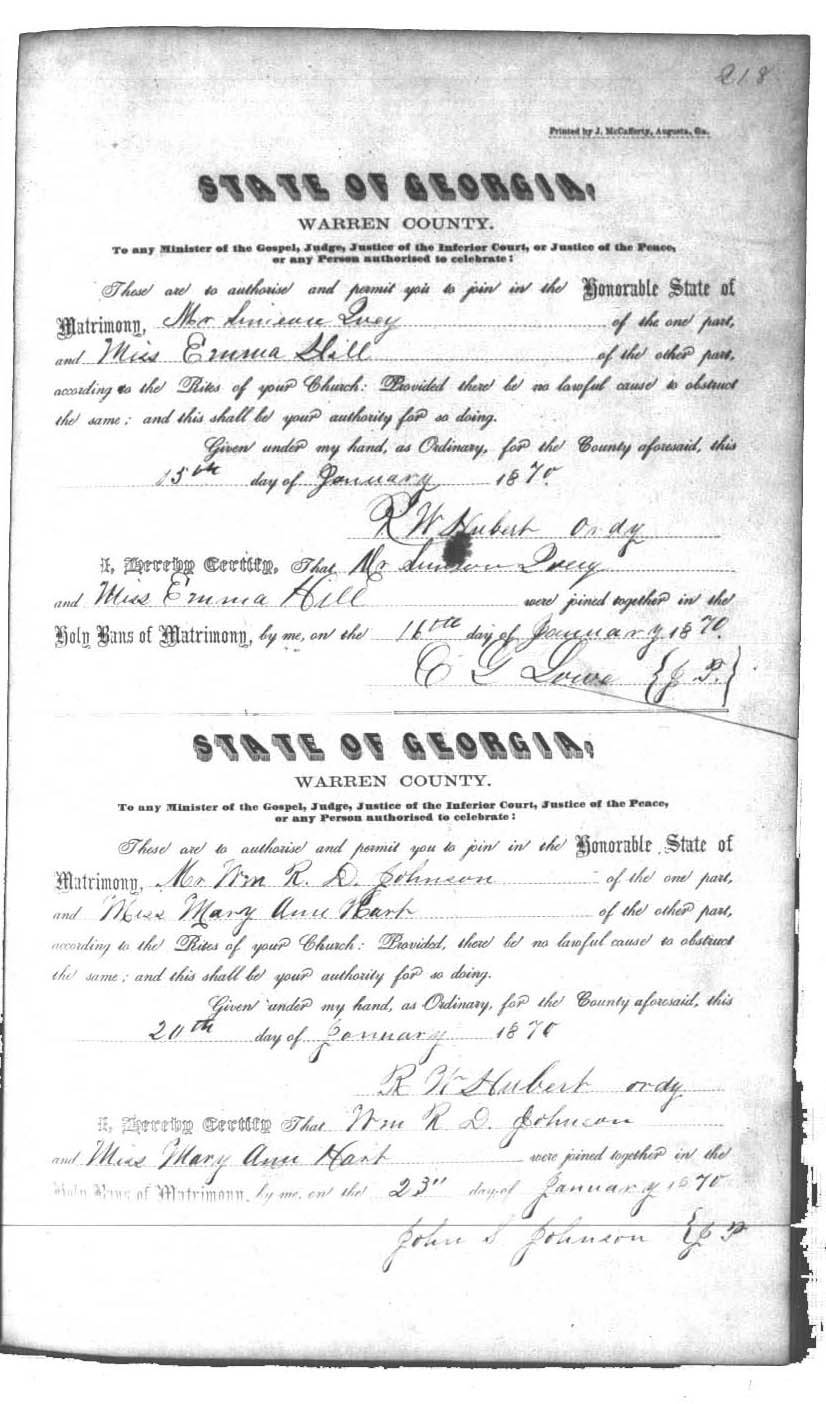 218
Printed by J. McCafferty, Augusta, Ga.
STATE OF GEORGIA,
WARREN COUNTY.
To any Minister of the Gospel, Judge, Justice of the Inferior Court, or Justice of the Peace,
or any Person authorised to celebrate:
These are to authorise and permit you to join in the Honorable State of
Matrimony, Mr Simeon Ivey of the one part,
and Miss Emma Hill of the other part,
according to the Rites of your Church: Provided there be no lawful cause to obstruct
the same; and this shall be your authority for so doing.
Given under my hand, as Ordinary, for the County aforesaid, this
15th day of January 1870
R W Hubert ordy
I, Hereby Certify, That Mr Simeon Ivey
and Miss Emma Hill were joined together in the
Holy Bans of Matrimony, by me, on the 16th day of January 1870.
C G Lowe {J P.}
STATE OF GEORGIA,
WARREN COUNTY.
To any Minister of the Gospel, Judge, Justice of the Inferior Court, Justice of the Peace,
or any Person authorised to celebrate:
These are to authorise and permit you to join in the Honorable State of
Matrimony, Mr Wm R. D. Johnson of the one part,
and Miss Mary Ann Hart of the other part,
according to the Rites of your Church: Provided, there be no lawful cause to obstruct
the same; and this shall be your authority for so doing.
Given under my hand, as Ordinary, for the County aforesaid, this
20th day of January 1870
R W Hubert ordy
I, Hereby Certify That Wm R D. Johnson
and Miss Mary Ann Hart were joined together in the
Holy Bans of Matrimony, by me, on the 23" day of January 1870
John S Johnson {J P